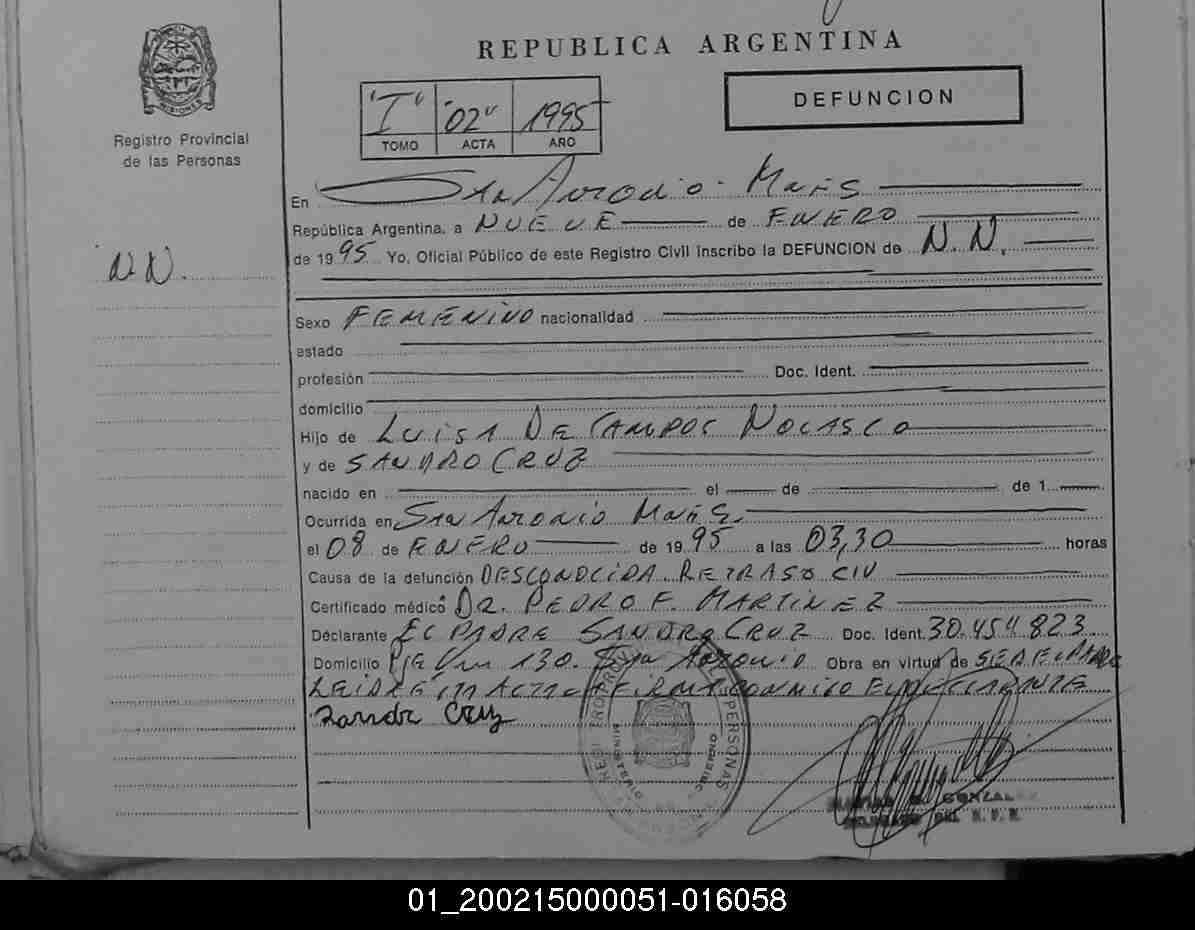 REPUBLICA ARGENTINA
DEFUNCION
MISIONES
Registro Provincial
de las Personas
"I" "02" 1995
TOMO ACTA AÑO
En San Antonio - Mnes
República Argentina, a NUEVE de ENERO
de 1995 Yo, Oficial Público de este Registro Civil inscribo la DEFUNCION de N.N.
N.N.
Sexo FEMENINO nacionalidad
estado
profesión Doc. Ident.
domicilio
Hijo de LUISA DE CAMPOS NOLASCO
y de SANDRO CRUZ
nacido en el de de 1
Ocurrida en San Antonio Mnes.
el 08 de ENERO de 1995 a las 03,30 horas
Causa de la defunción DESCONOCIDA. RETRASO CIU
Certificado médico DR. PEDRO F. MARTINEZ
Declarante EL PADRE SANDRO CRUZ Doc. Ident. 30.454.823
Domicilio Pje 130. San Antonio Obra en virtud de SER EL PADRE
LEIDA EL ACTA FIRMA CONMIGO EL DECLARANTE
Sandr Cruz
PERSONAS
MINISTERIO GOBIERNO
GONZALEZ
DEL R. P. P.
01_200215000051-016058